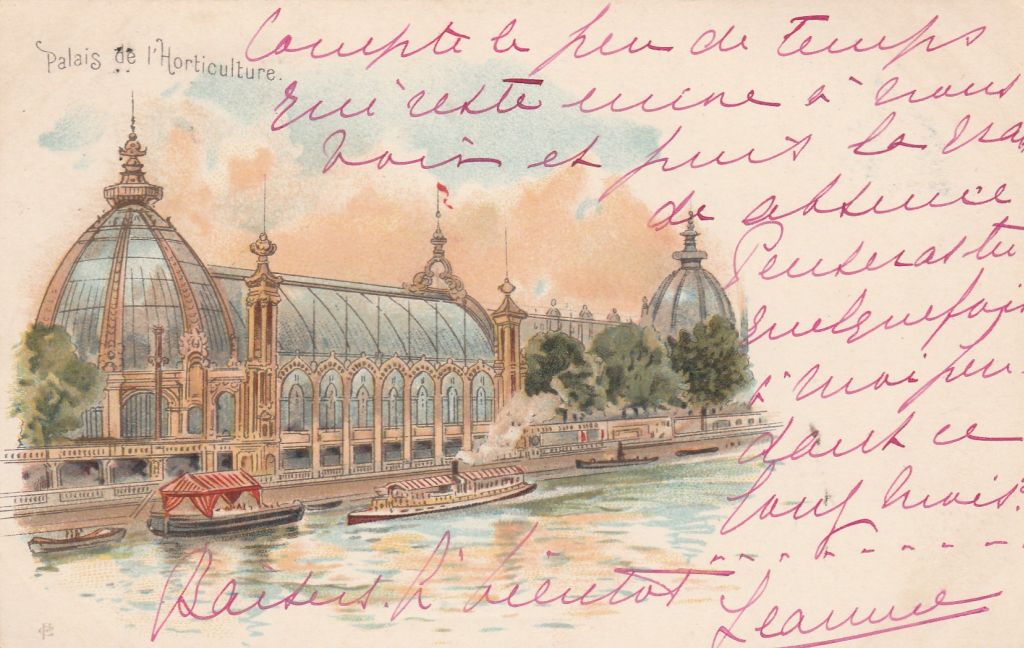 Palais de l'Horticulture.
Compte le peu de temps
qui reste même à nous
voir et puis la gran
de absence
Penseras tu
quelquefois
à moi pen-
dant ce
long mois?
Baisers. A bientôt
Jeanne